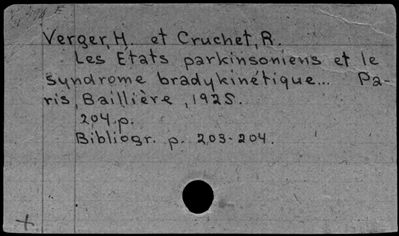 Verger, H. et Cruchet, R.
Les Etats parkinsoniens et le
syndrome bradykinétique... Pa-
ris, Baillière, 1925.
204 p.
Bibliogr. p. 203-204.